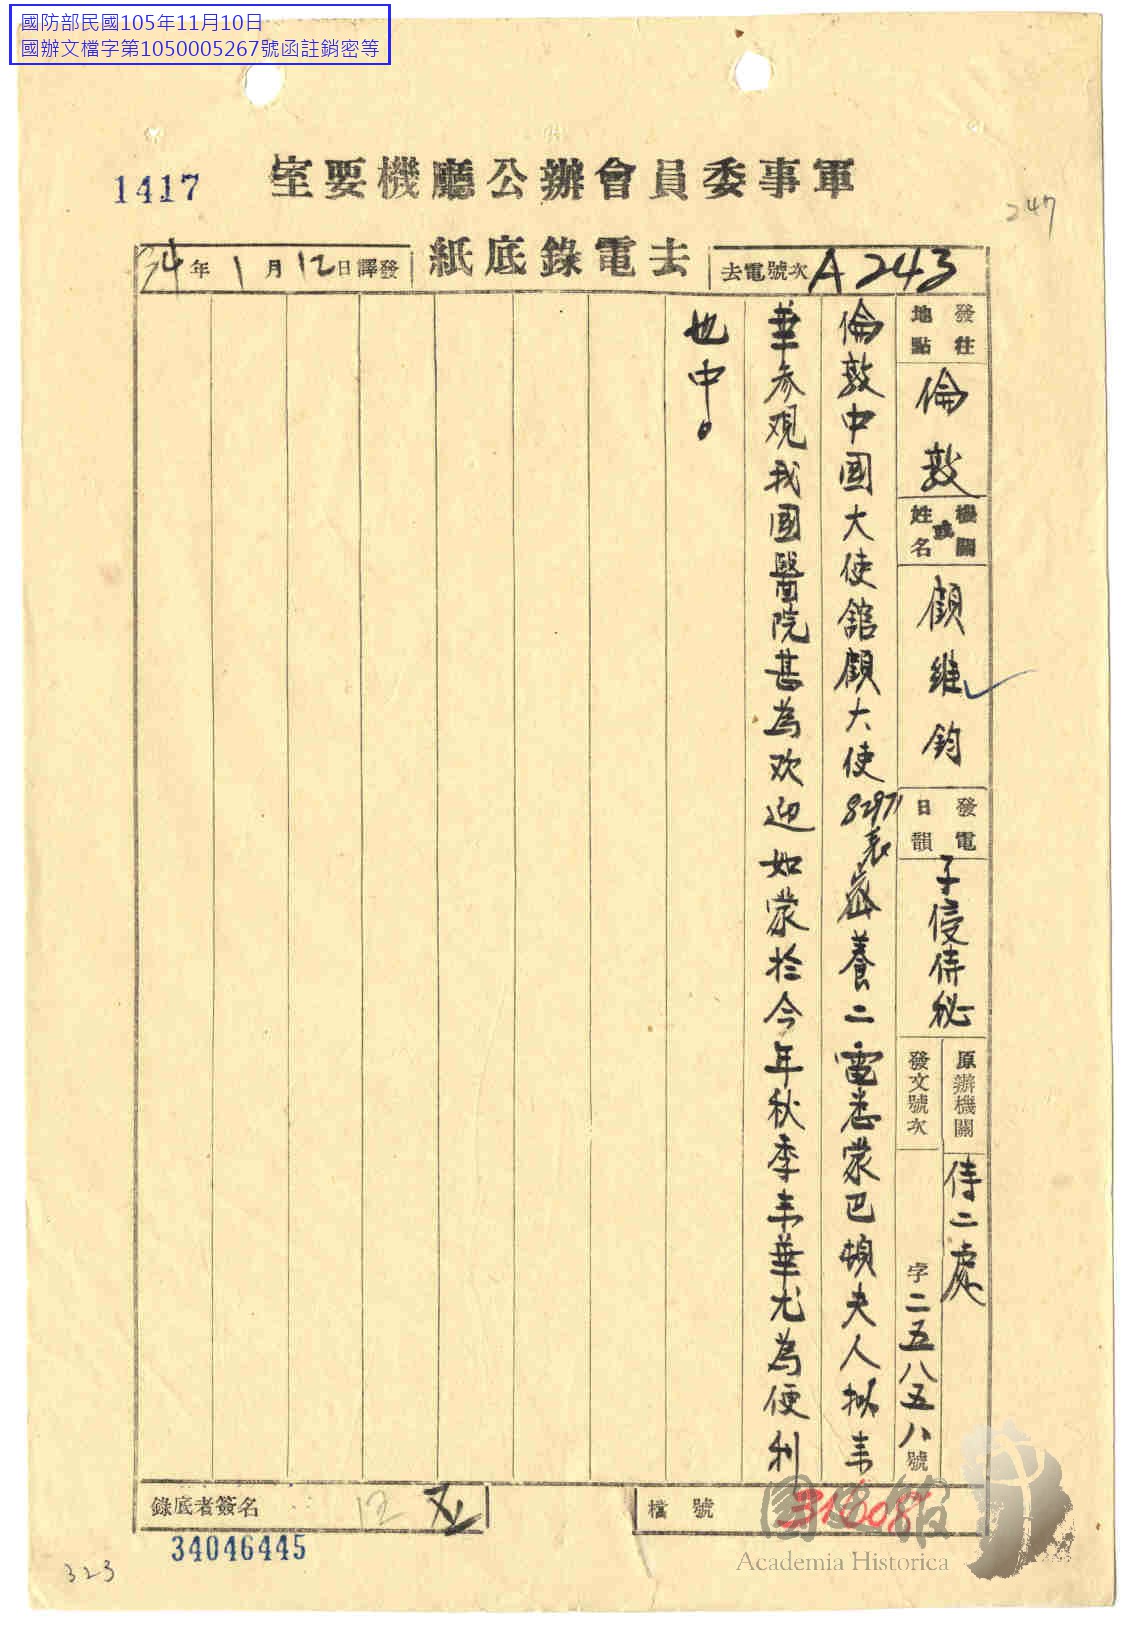 國防部民國105年11月10日
國辦文檔字第1050005267號函註銷密等
軍事委員會辦公廳機要室
1417
247
去電錄底紙
去電號次 A243
34年1月12日譯發
發往地點
倫敦
機關或姓名
顧維鈞
發電日韻
子侵侍秘
原辦機關
侍二處
發文號次
字二五八五八號
倫敦中國大使館顧大使82971表 養二電悉蒙巴頓夫人擬来
華参观我國醫院甚為欢迎如蒙於今年秋季来華尤為便利
也中。
檔號 31608
錄底者簽名
12
34046445
323
國史館
Academia Historica